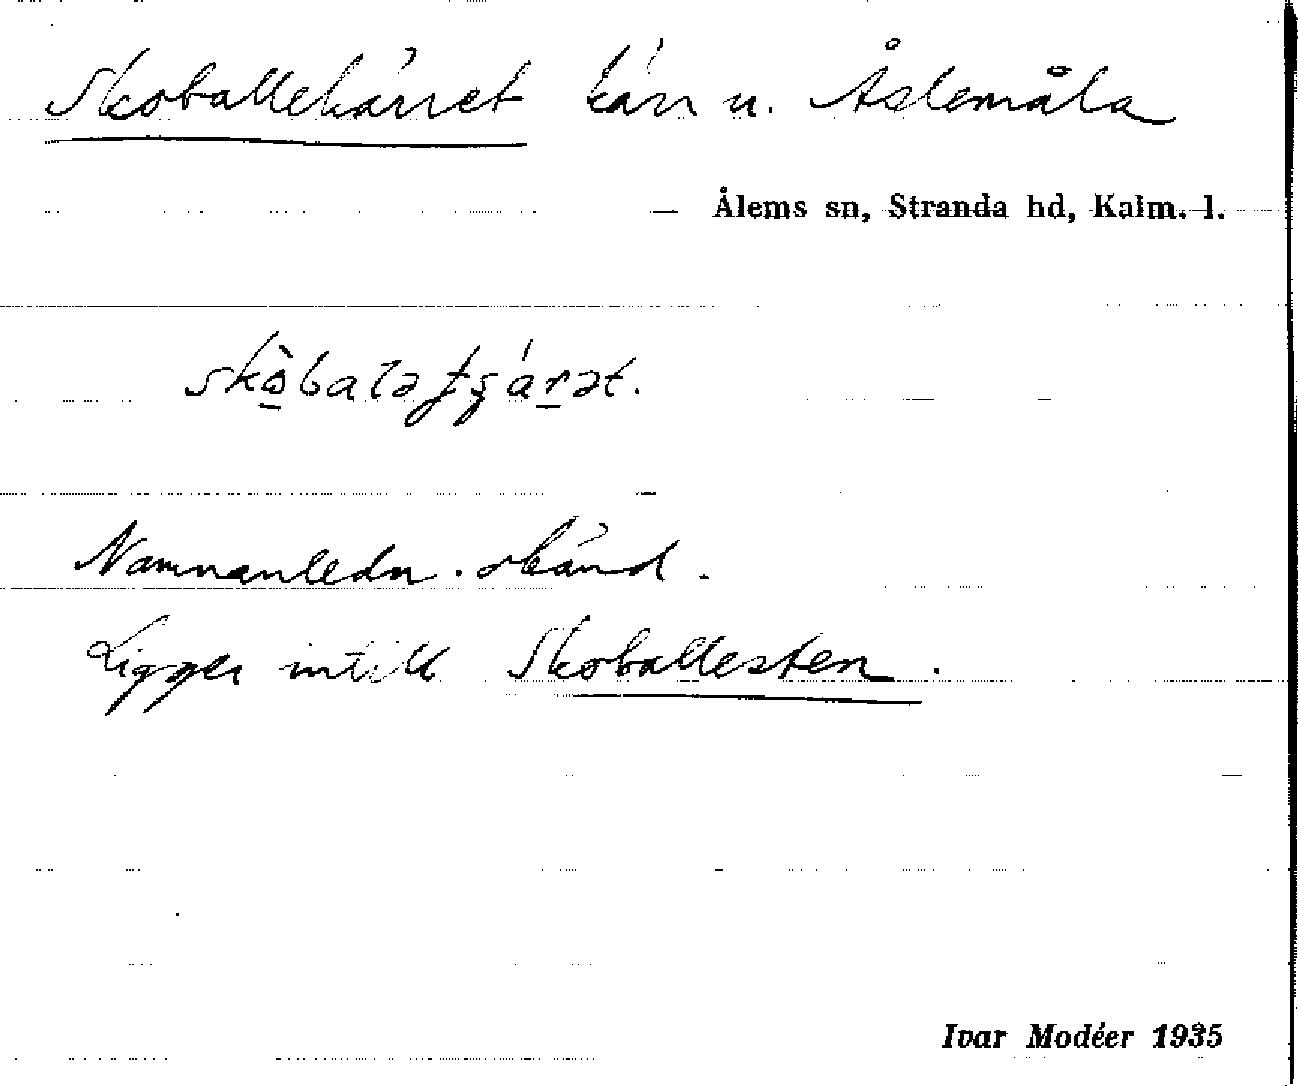 Skoballekärret kärr u. Åslemåla
— Ålems sn, Stranda hd, Kalm. l.
skòbalət̯ʂárət.
Namnanledn. okänd.
Ligger intill Skoballesten.
Ivar Modéer 1935